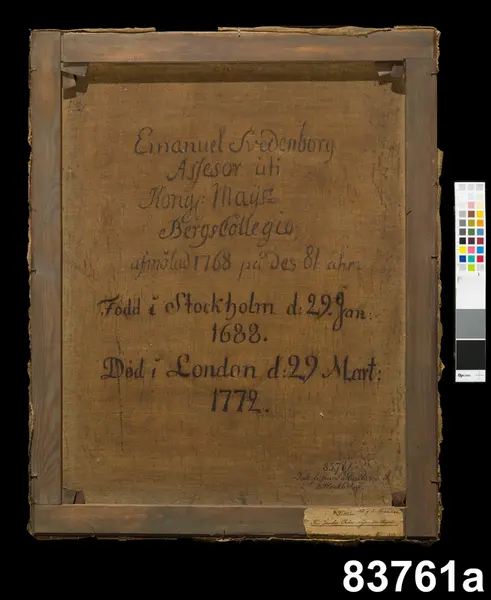 Emanuel Svedenborg
Assesor uti
Kongl: Mayst:
BergsCollegio,
afmålad 1768 på des 81 åhr:
Född i Stockholm d: 29. Jan:
1688.
Död i London d: 29 Mart:
1772.
83761
83761a